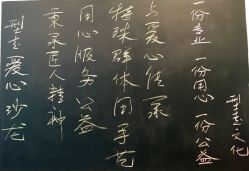 型艺爱心沙龙
秉承匠人精神
用心服务公益
特殊群体因手艺
与爱心
一份专业 一份用心 一份公益
型艺文化